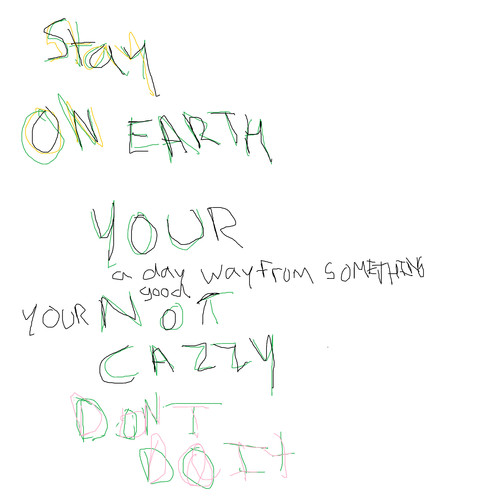 Stay
ON EARTH
YOUR
a day way from SOMETHING
good
YOUR NOT
CAZZY
DONT
DO It